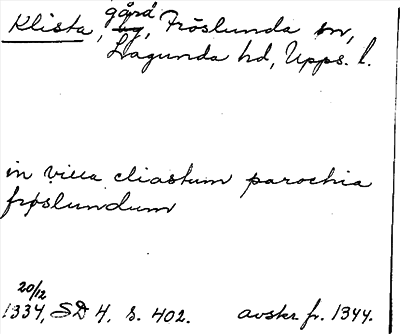 gård
Klista, by, Fröslunda sn,
Lagunda hd, Upps. l.
in villa cliastum parochia
frøslundum
20/12
1334, SD 4, s. 402. avskr. fr. 1344.